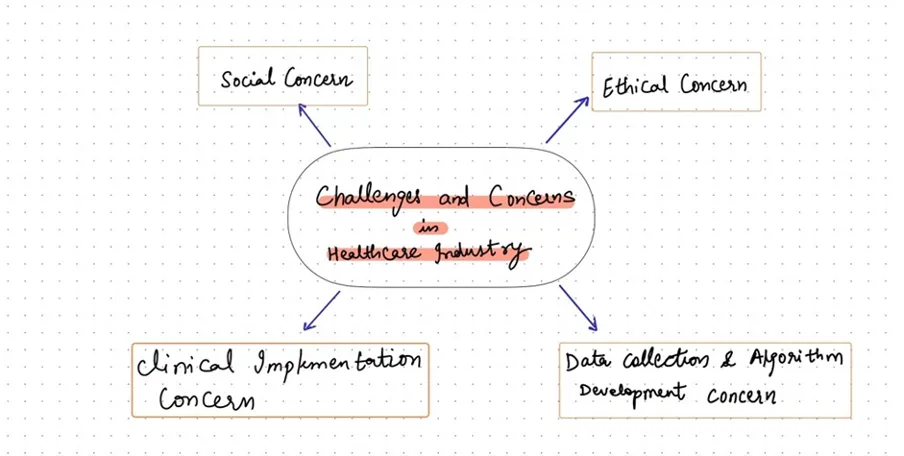 Social Concern
Ethical Concern
Challenges and Concerns
in
Healthcare Industry
Clinical Implementation
Concern
Data Collection & Algorithm
Development Concern